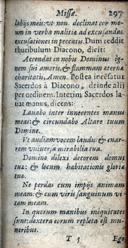 Missæ. 297
labijs meis: vt non declinet cor me-
um in verba malitiæ ad excusandas
excusationes in peccatis. Dum reddit
thuribulum Diacono, dicit:
Accendat in nobis Dominus ig-
nem sui amoris, & flammam æternæ
charitatis. Amen. Postea incensatur
Sacerdos à Diacono, deinde alij
per ordinem. Interim Sacerdos la-
uat manus, dicens:
Lauabo inter innocentes manus
meas: & circundabo Altare tuum
Domine.
Vt audiam vocem laudis: & enar-
rem vniuersa mirabilia tua.
Domine dilexi decorem domus
tuæ: & locum habitationis gloriæ
tuæ.
Ne perdas cum impijs animam
meam: & cum viris sanguinum vi-
tam meam.
In quorum manibus iniquitates
sunt: dextera eorum repleta est mu-
neribus.
T 5 Ego